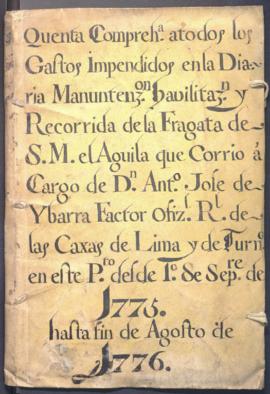 Quenta Compreh.ª atodos los
Gastos Impendidos en la Dia-
ria Manuntenz.on havilitaz.n y
Recorrida de la Fragata de
S.M. el Aguila que Corrio á
Cargo de D.n Ant.o Josse de
Ybarra Factor Ofiz.l R.l de
las Caxas de Lima y de Turn.o
en este P.to desde 1.o de Sep.re de
1775.
hasta fin de Agosto de
1776.